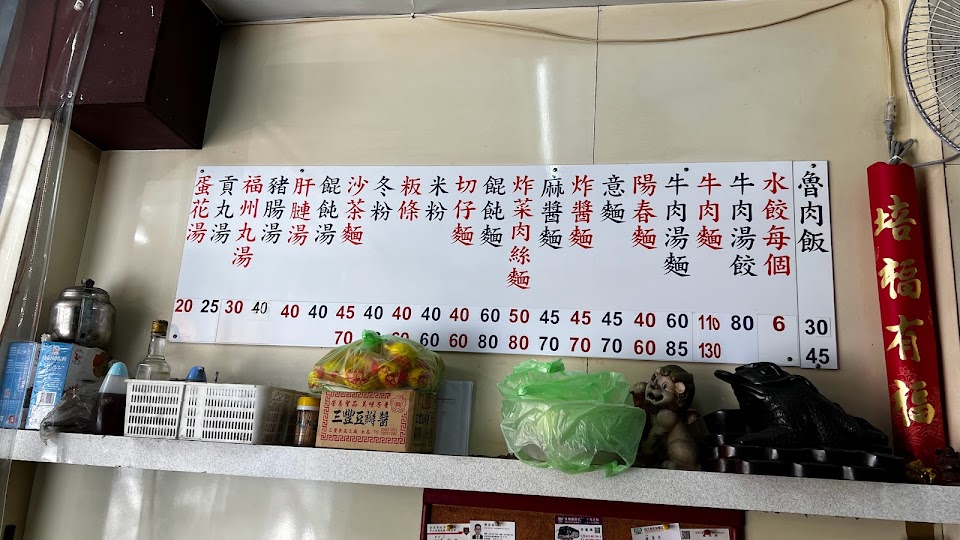 魯肉飯 30 45
水餃每個 6
牛肉湯餃 80
牛肉麵 110 130
牛肉湯麵 60 85
陽春麵 40 60
意麵 45 70
炸醬麵 45 70
麻醬麵 45 70
炸菜肉絲麵 50 80
餛飩麵 60 80
切仔麵 40 60
米粉 40 60
粄條 40 60
冬粉 40
沙茶麵 45 70
餛飩湯 40
肝腱湯 40
豬腸湯 40
福州丸湯 30
貢丸湯 25
蛋花湯 20
培福有福
三豐豆瓣醬